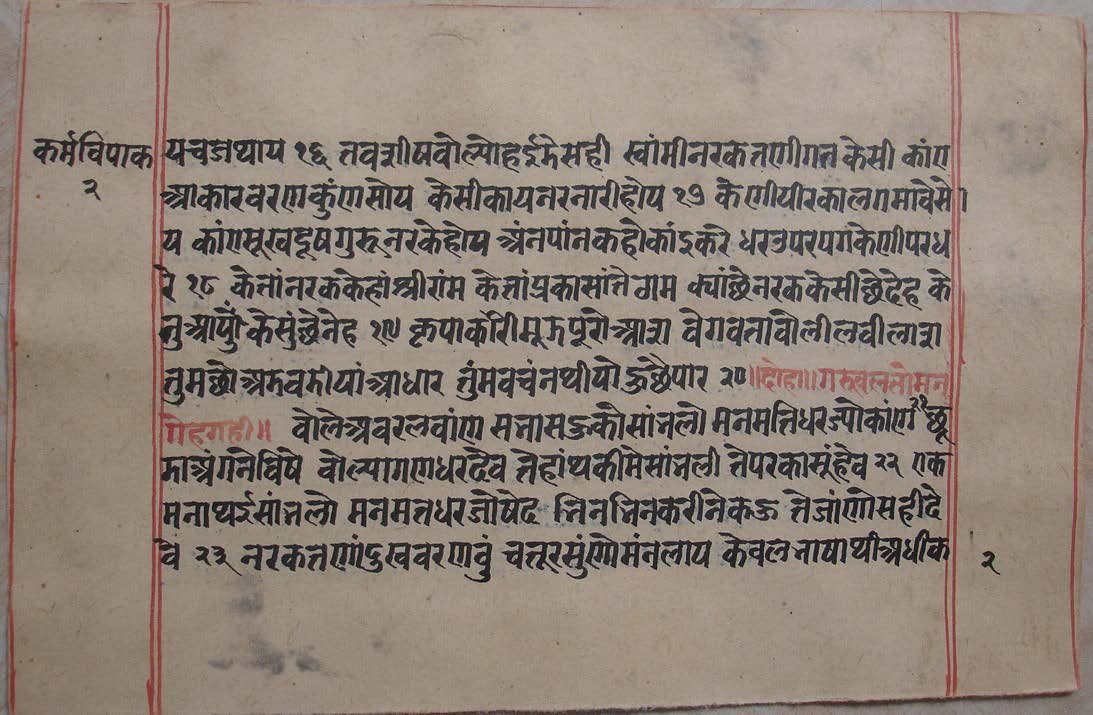 कर्मविपाक
२
यचजथाय १६ तवशीषवोल्योहईडेसही स्वांमीनरकतणीगत केसी कांण
आकारवरणकुंणसोय केसीकायनरनारीहोय १७ केणीपीरकालगमावेसे।
य कांणसूखदूषगुरुनरकेहोय अंनपांनकहोकांइकरे धरउपरपगकेणीपरध
रे १८ केतांनरककेहांश्रीरांम केतांप्रकासांनेगम क्यांछेनरककेसीछेदेह के
नुआपुंकेसुंछेनेह १९ कृपाकरीमूऊपुरोआश वेगवतावोलीलवीलाश
तुमछोअऊवऊोयांआधार तुंमवचंनथीपोऊछेपार २० ॥दोहा॥गरुखलतोमन
गेहगही॥ वोलेअवरलवांण सभासऊकोसांभलो मनमतिधरज्योकांण २१ छ
ठाअंगनेविषे वोल्यागणधरदेव तेहांथकीमेसांभली तेपरकासूंहेव २२ एक
मनाथईसांभलो मनमतधरजोषेद भिनभिनकरीनेकऊ तेजांणेसहीदे
वे २३ नरकतणांदुखवरणवुं चतूरसुंणोमंनलाय केवलभाषाथीअधीक
२